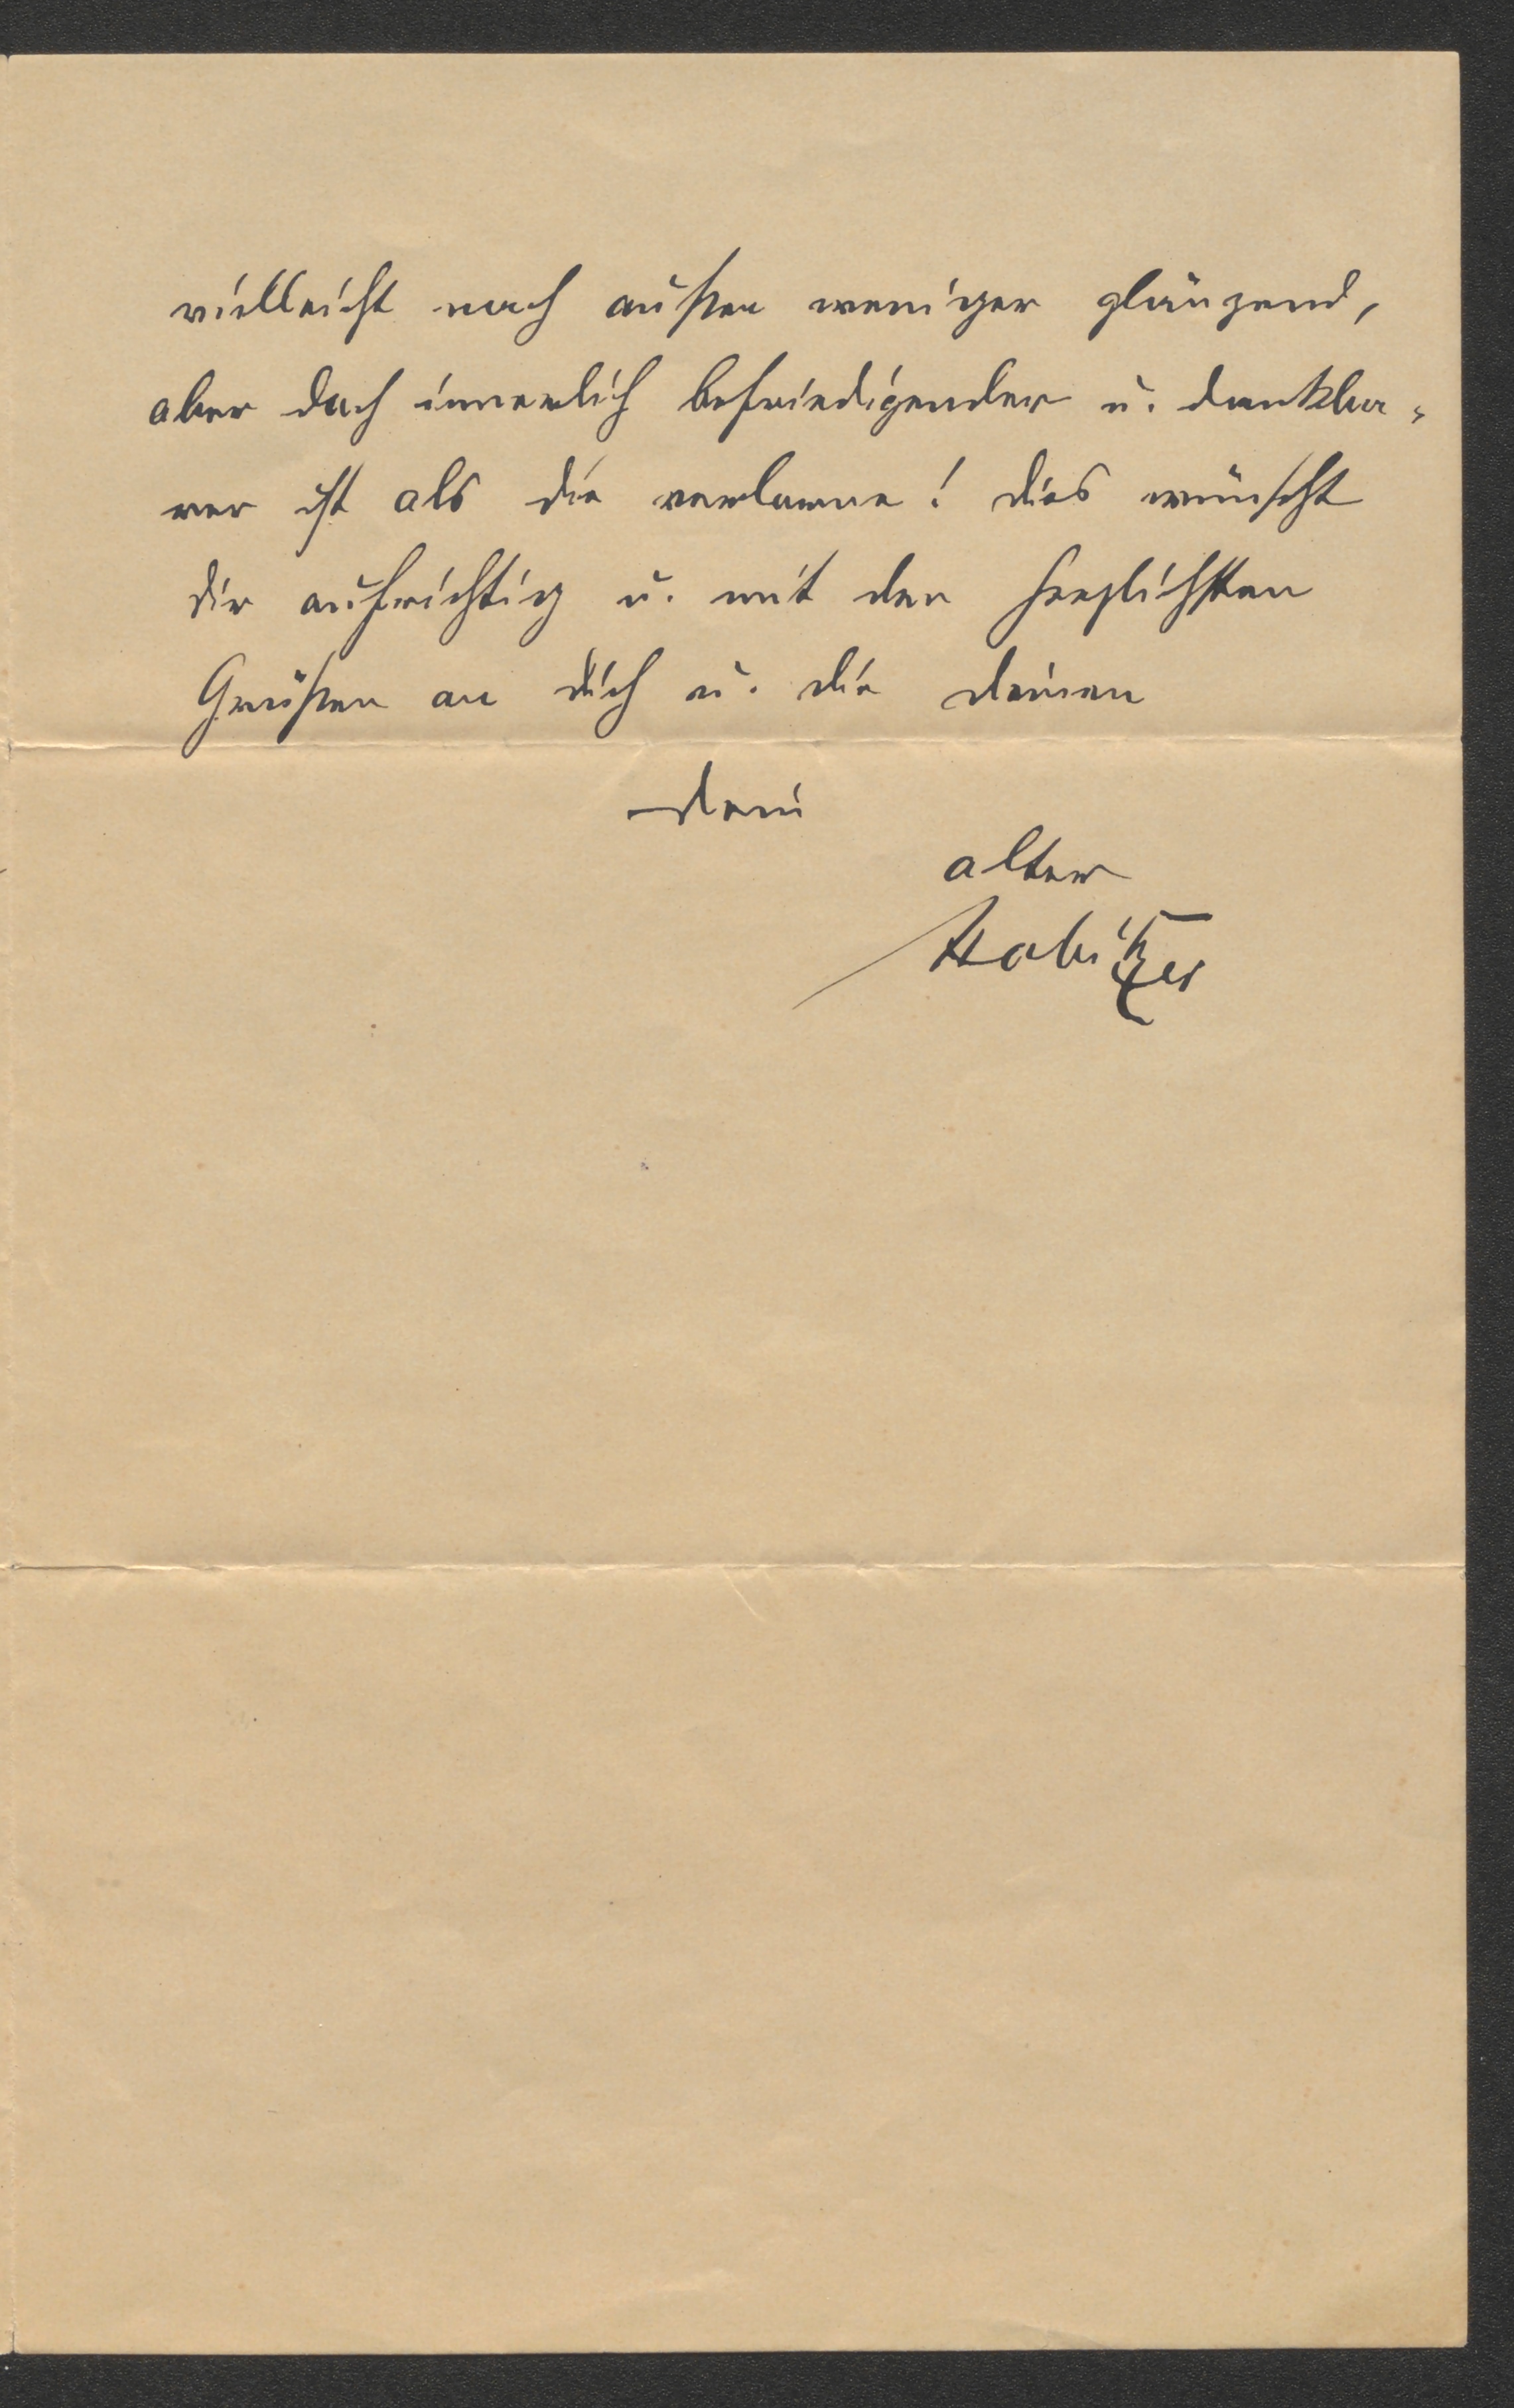 vielleicht nach außen weniger glänzend,
aber doch innerlich befriedigender u. dankba-
rer ist als die verlorene! Dies wünscht
Dir aufrichtig u. mit den herzlichsten
Grüßen an Dich u. die Deinen
Dein
alter